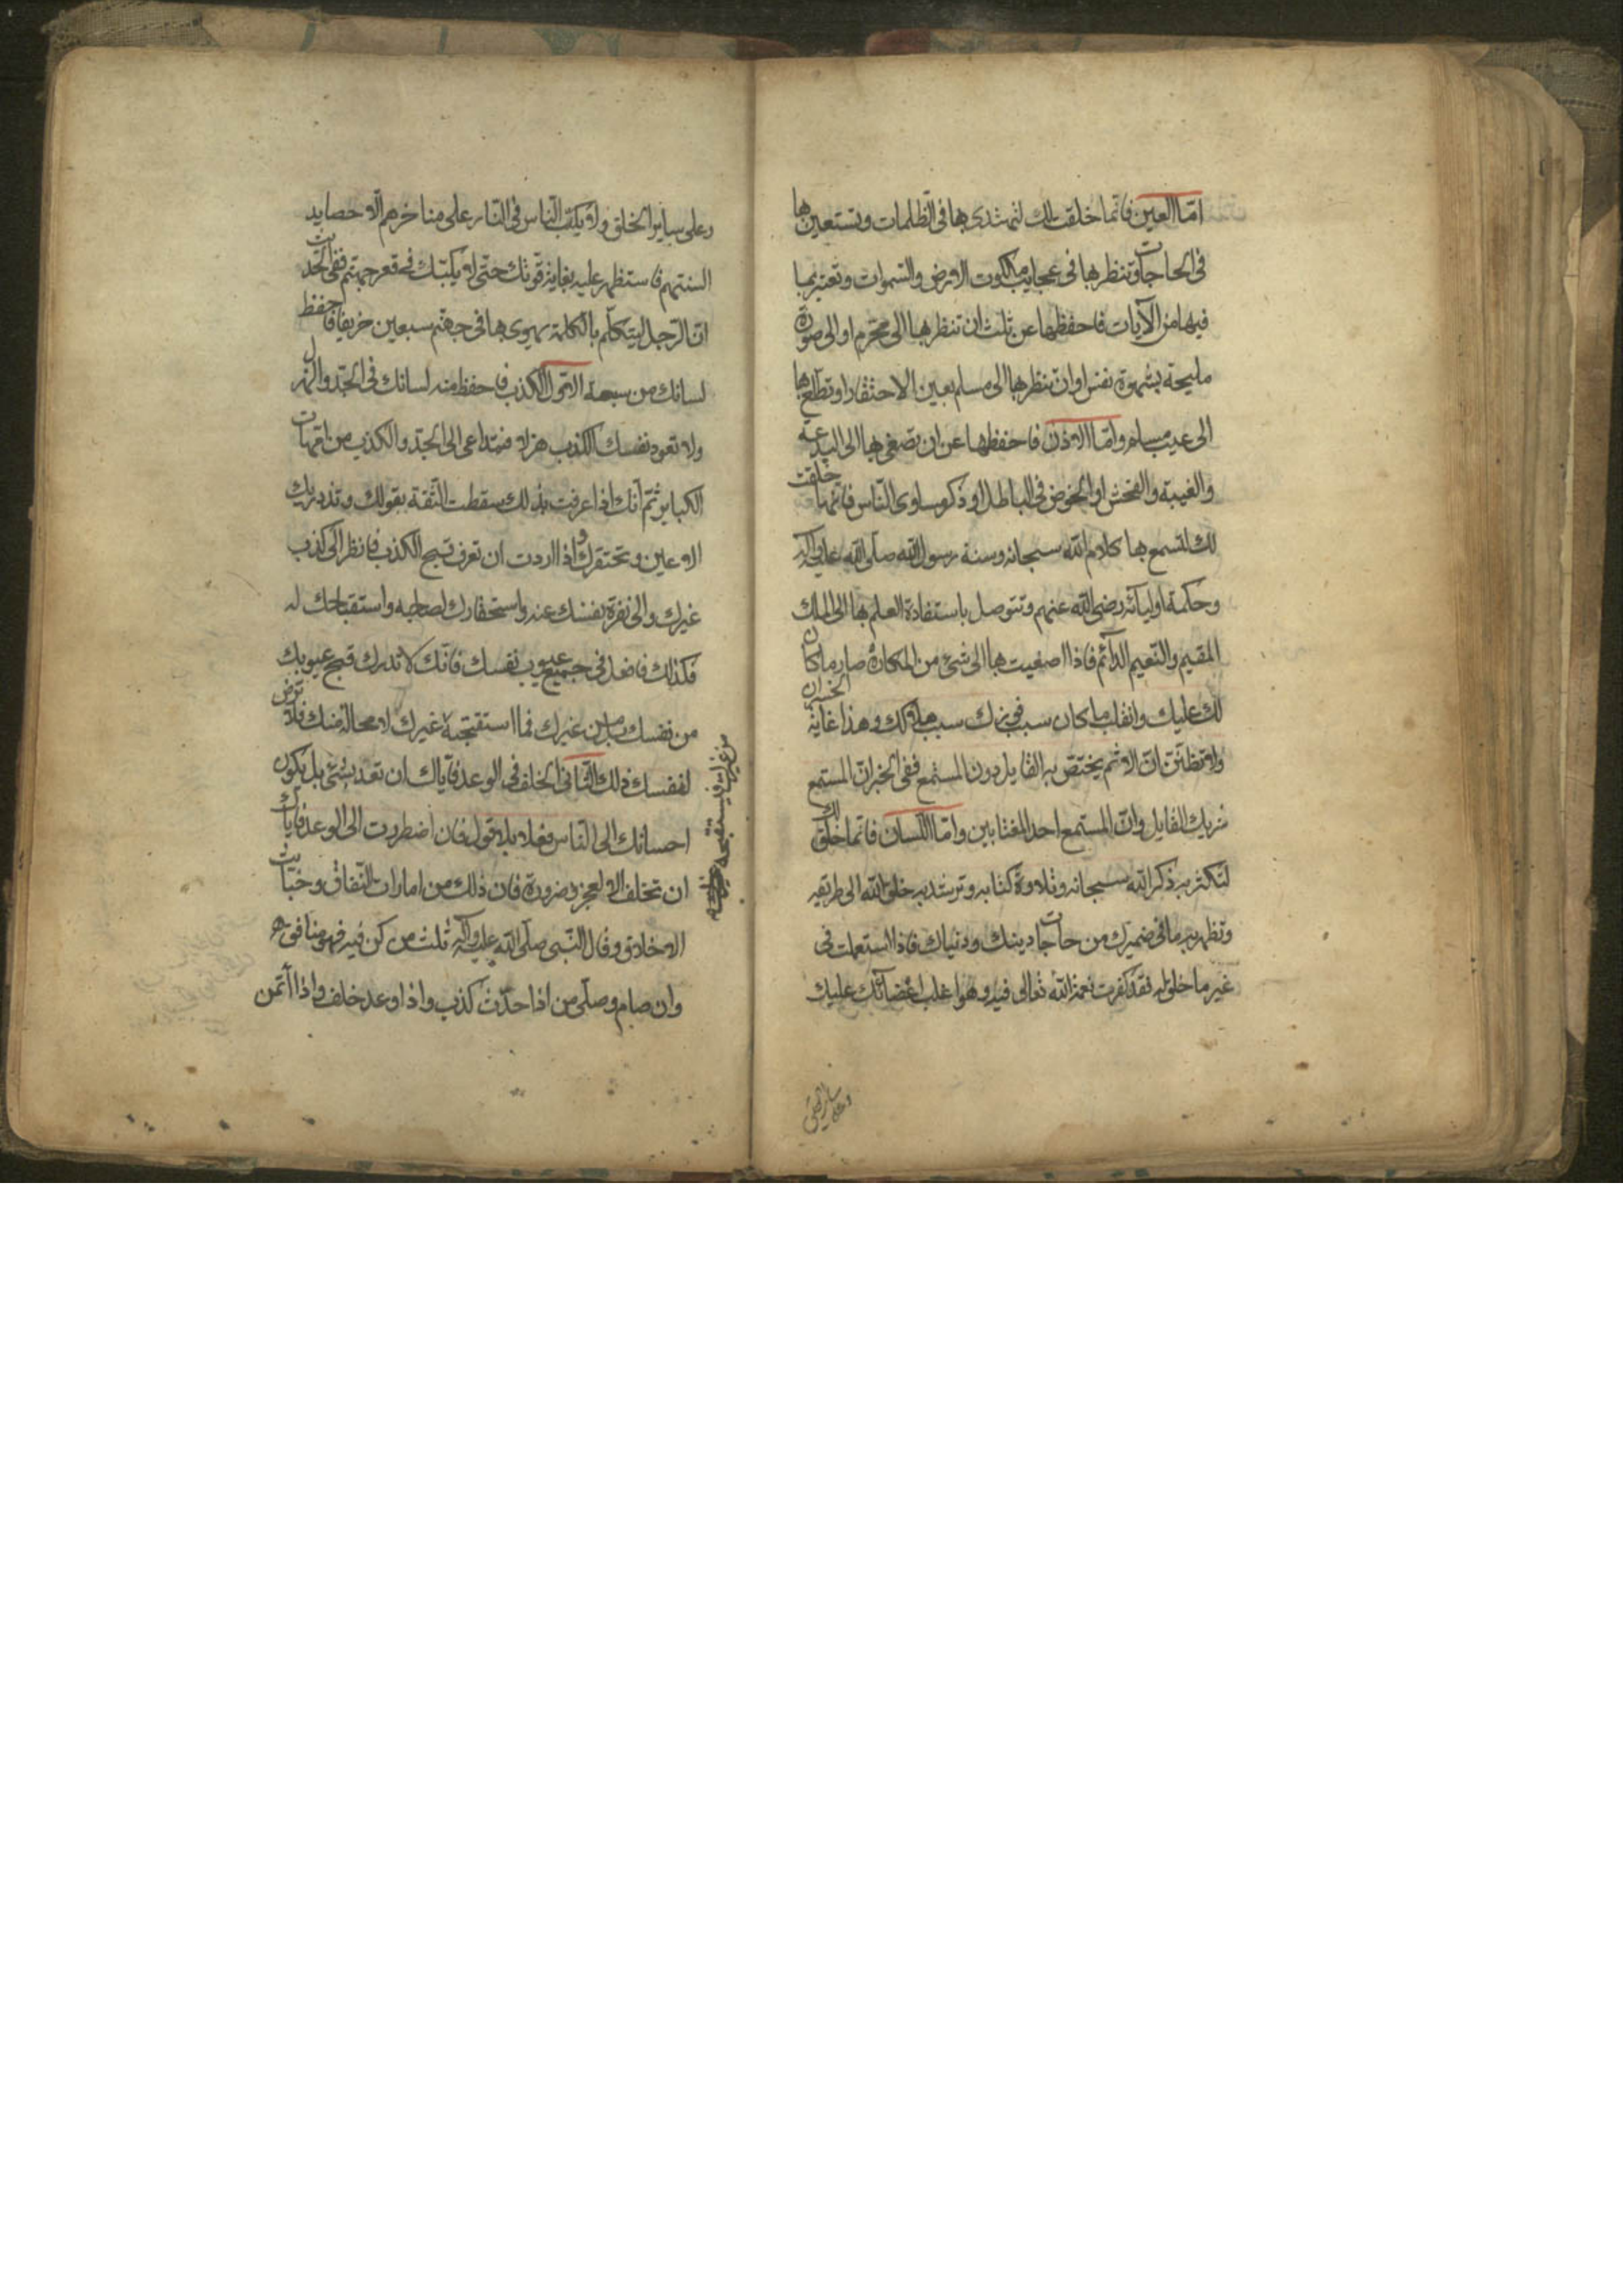 امّا العين فانّما خلقت لك لتهتدى بها فى الظلمات وتستعين بها
فى الحاجات وتنظر بها فى عجايب ملكوت الارض والسّموات وتعتبر بما
فيها من الآيات فاحفظها عن ثلث ان تنظر بها الى محرّم او الى صورة
مليحة بشهوة نفس او ان تنظر بها الى مسلم بعين الاحتقار او تطّلع بها
الى عيب مسلم وامّا الاذن فاحفظها عن ان تصغى بها الى البدعة
والغيبة والفحش او الخوض فى الباطل او ذكر مساوى النّاس فانّما خلقت
لك لتسمع بها كلام الله سبحانه وسنة رسول الله صلّى الله عليه وآله
وحكمة اوليائه رضى الله عنهم وتتوصل باستفادة العلم بها الى الملك
المقيم والنّعيم الدّائم فاذا اصغيت بها الى شئ من المكاره صار ما كان
لك عليك وانقلب ما كان سبب فوزك سبب هلاكك وهذا غاية الخسران
ولا تظنّنّ انّ الاثم يختصّ به القايل دون المستمع ففى الخبر انّ المستمع
شريك القايل وانّ المستمع احد المغتابين وامّا اللّسان فانّما خلق لك
لتكثر به ذكر الله سبحانه وتلاوة كتابه وترشد به خلق الله الى طريقه
وتظهر به ما فى ضميرك من حاجات دينك ودنياك فاذا استعملت فى
غير ما خلق له فقد كفرت نعمة الله تعالى فيه وهو اغلب اعضائك عليك
وعلى ساير الخلق
وعلى ساير الخلق ولا يكبّ النّاس فى النّار على مناخرهم الّا حصايد
السنتهم فاستظهر عليه بغاية قوّتك حتّى لا يكبّك فى قعر جهنّم ففى الحديث
انّ الرّجل ليتكلّم بالكلمة يهوى بها فى جهنّم سبعين خريفا فاحفظ
لسانك من سبعة الاوّل الكذب فاحفظ منه لسانك فى الجدّ والهزل
ولا تعود نفسك الكذب هزلا فيتداعى الى الجدّ والكذب من امّهات
الكباير ثمّ انّك اذا عرفت بذلك سقطت الثّقة بقولك وتزدريك
الاعين وتحتقرك واذا اردت ان تعرف قبح الكذب فانظر الى كذب
غيرك والى نفرة نفسك عنه واستحقارك لصاحبه واستقباحك له
فكذلك فافعل فى جميع عيوب نفسك فانّك لا تدرك قبح عيوبك
من نفسك بل من غيرك فما استقبحته غيرك لا محالة منك فلا ترض
لنفسك ذلك الثّانى الخلف فى الوعد فايّاك ان تعد بشئ بل يكون
احسانك الى النّاس فعلا بلا قول فان اضطررت الى الوعد فايّاك
ان تخلف الّا لعجز وضرورة فان ذلك من امارات النّفاق وخبائث
الاخلاق وقال النّبى صلّى الله عليه وآله ثلث من كنّ فيه فهو منافق
وان صام وصلّى من اذا حدّث كذب واذا وعد خلف واذا ائتمن
من غيرك يستقبحه